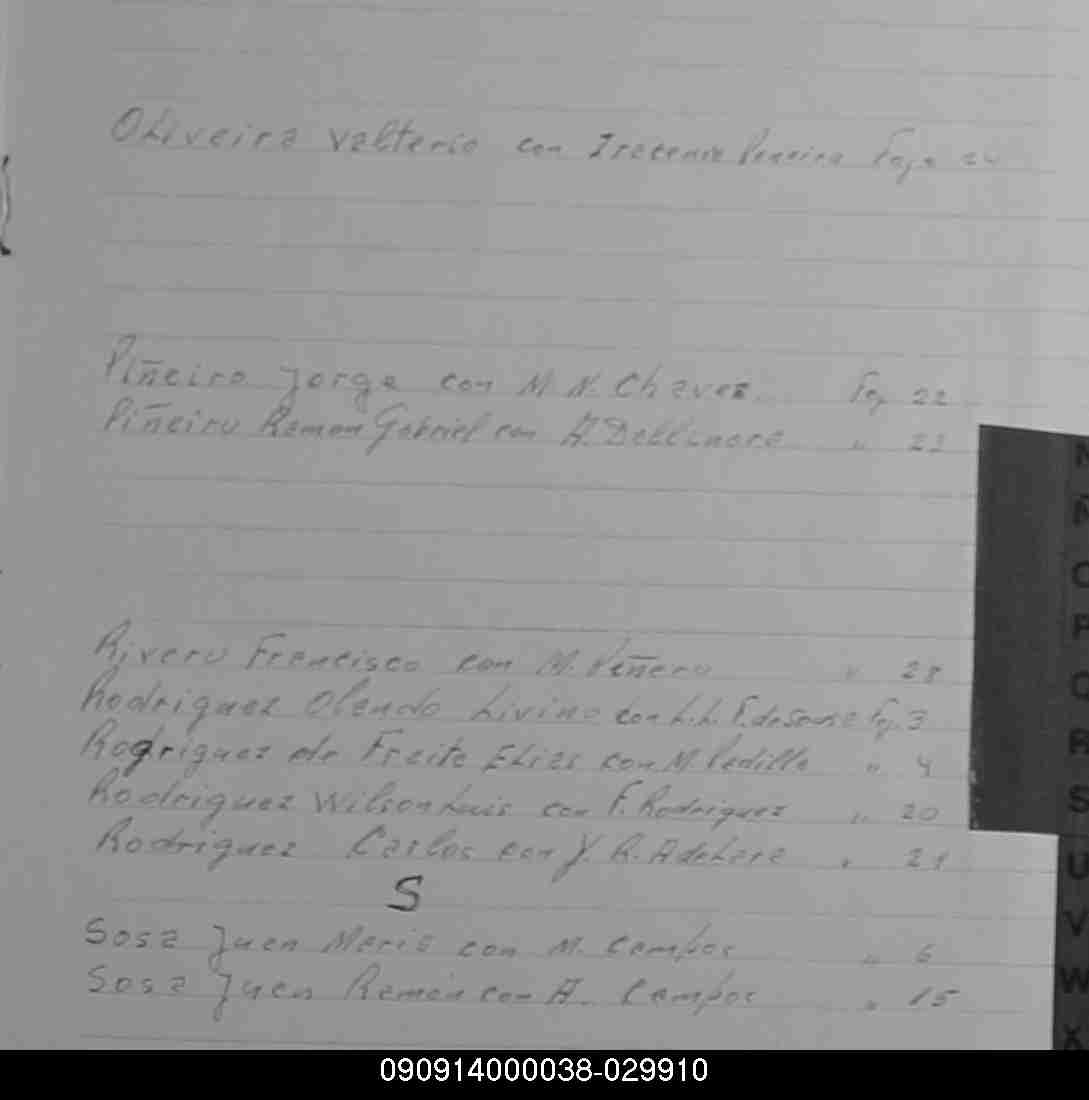 Oliveira Valterio con Iracema Pereira Foja 24
Piñeiro Jorge con M. N. Chavez Foj 22
Piñeiro Ramon Gabriel con A. Dellinora " 23
Rivero Francisco con M. Piñero " 28
Rodriguez Olendo Livino con L. L. F. de Souse Foj. 3
Rogriguez de Freite Elias con M. Padilla " 4
Rodriguez Wilson Luis con F. Rodriguez " 20
Rodriguez Carlos con Y. R. " 21
S
Sosa Juan Mario con M. Campos " 6
Sosa Juan Ramón con A. Campos " 15
N
Ñ
O
P
Q
R
S
U
V
W
X
090914000038-029910